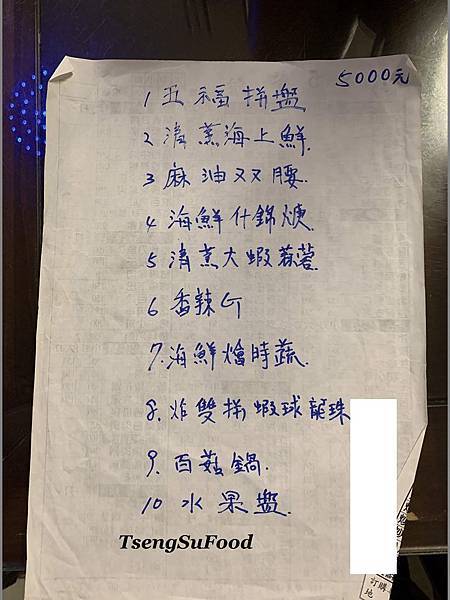 5000元
1 五福拼盤
2 清蒸海上鮮.
3 麻油双腰.
4 海鮮什錦焿
5 清蒸大蝦蒜蓉.
6 香辣G
7.海鮮燴時蔬.
8.炸雙拼蝦球龍珠
9.百菇鍋.
10 水果盤.
TsengSuFood
訂購
地